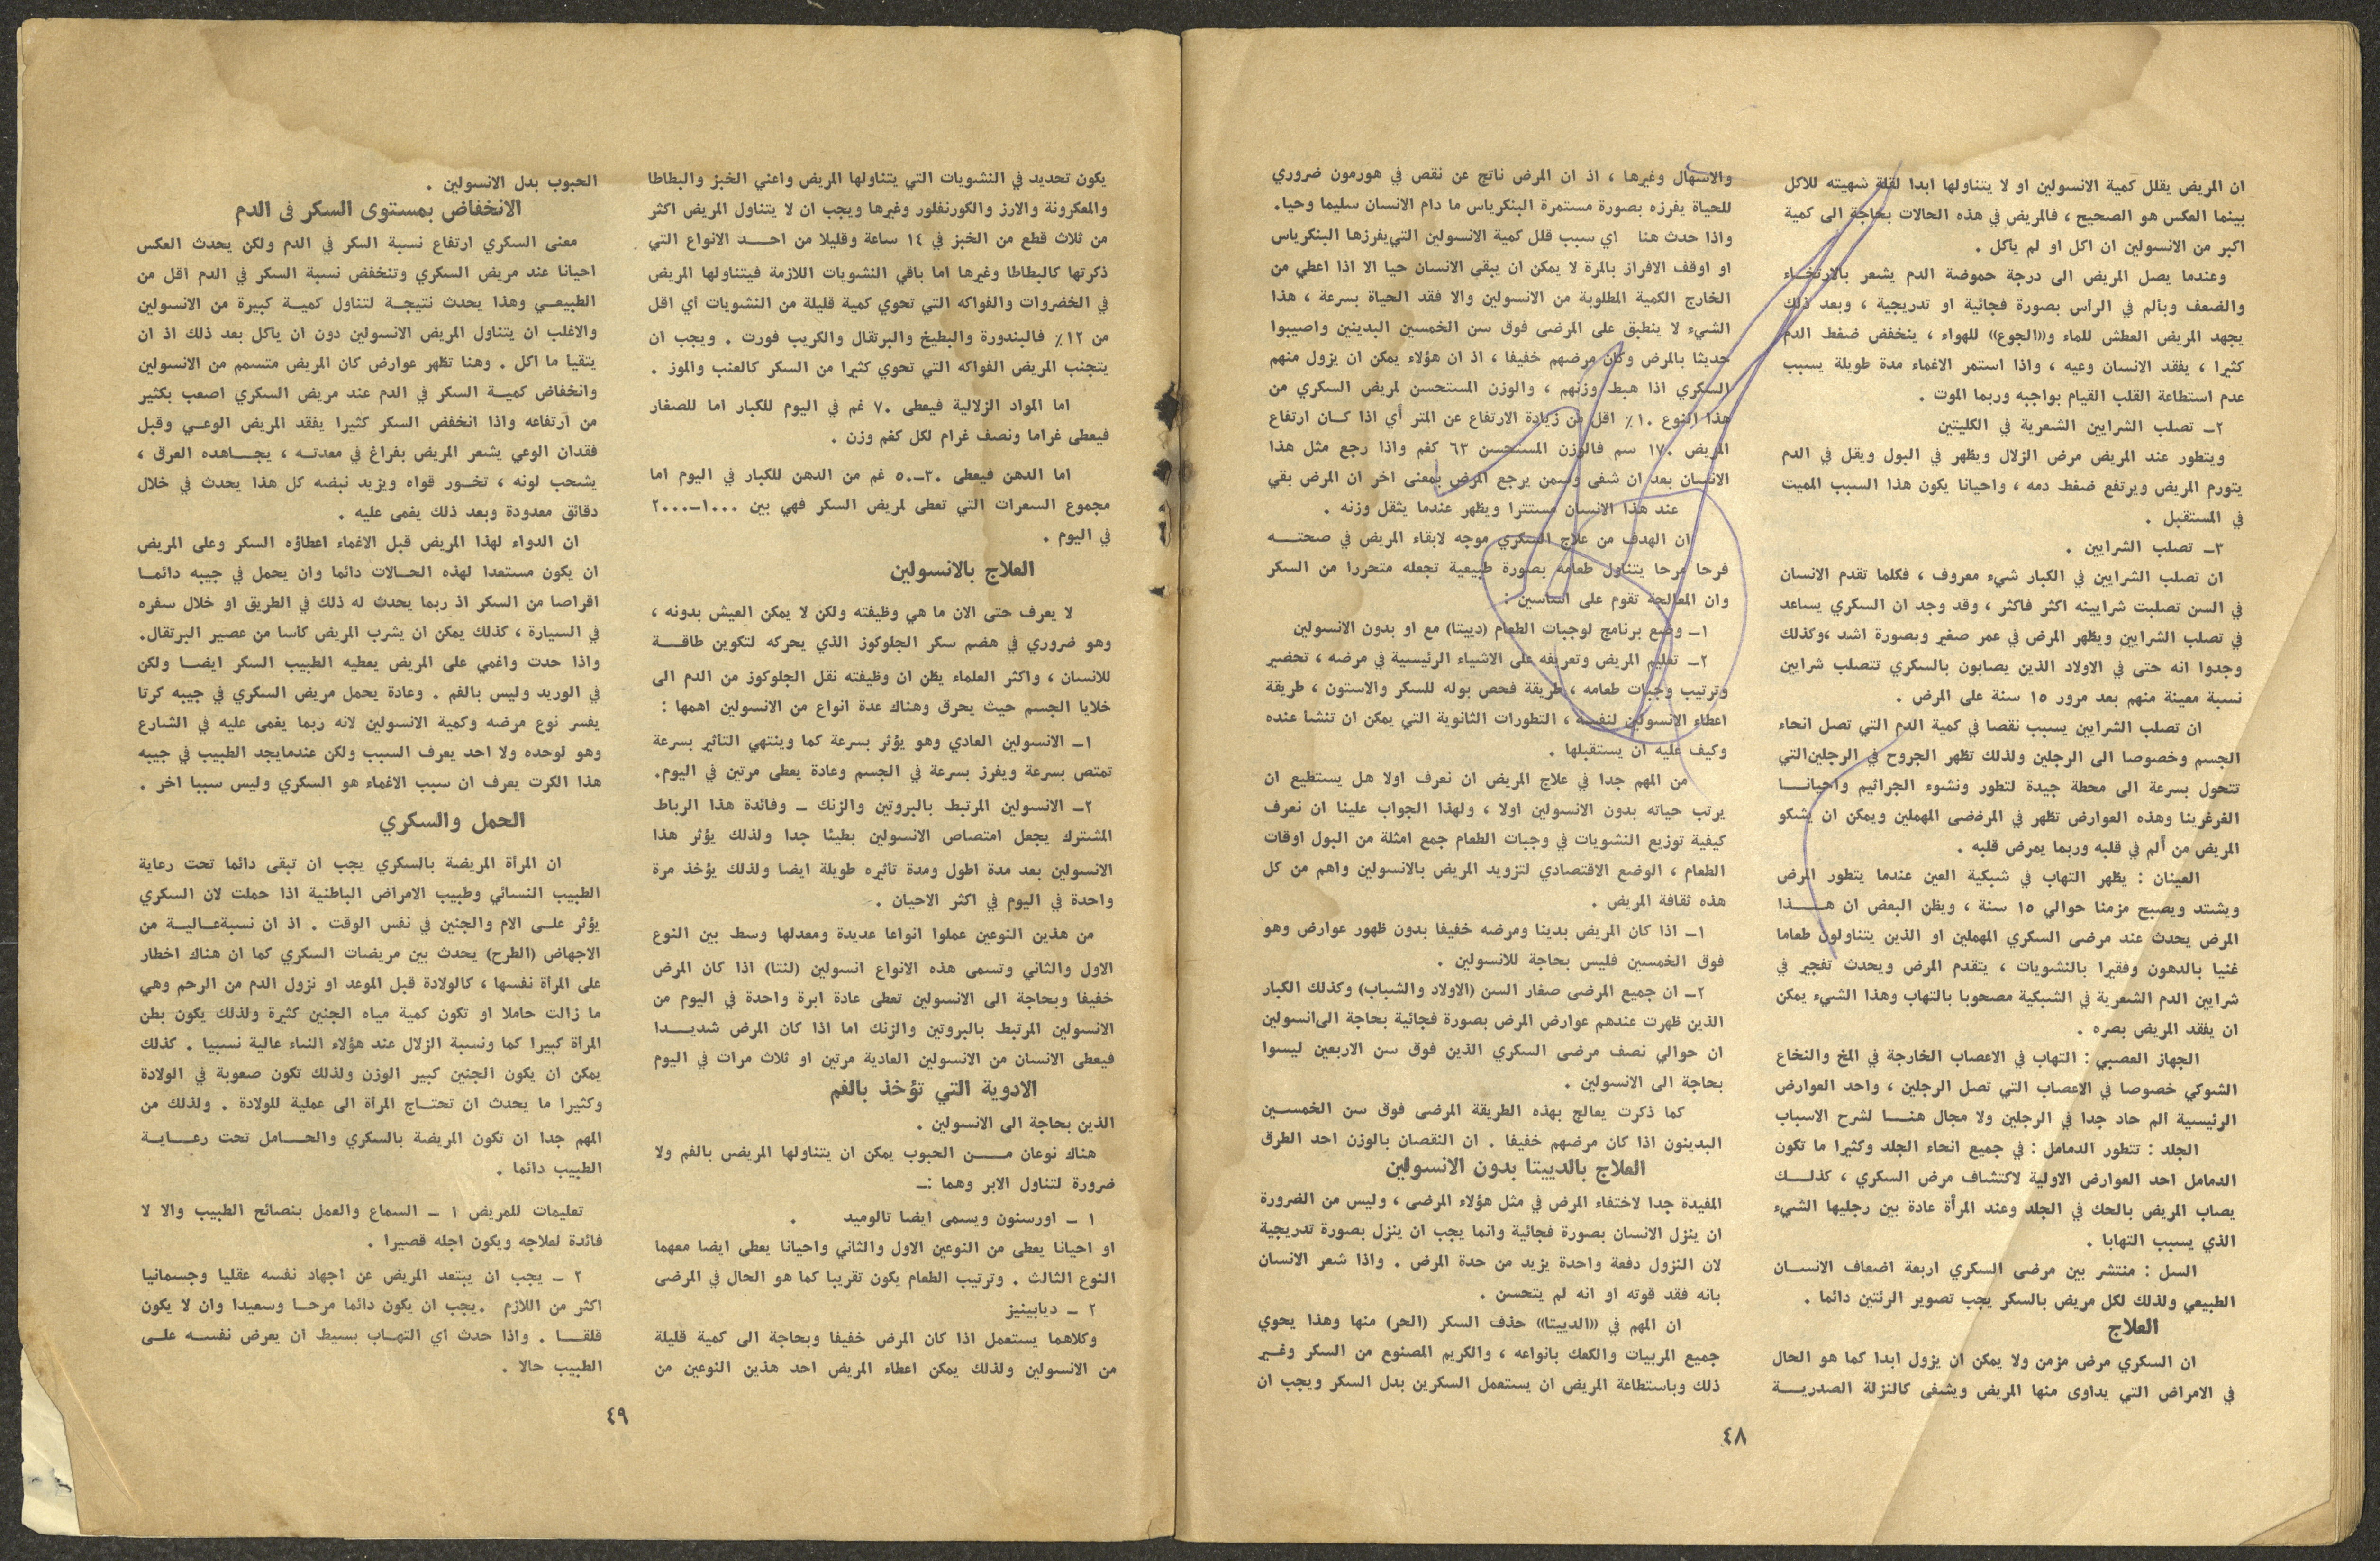 ان المريض يقلل كمية الانسولين او لا يتناولها ابدا لقلة شهيته للاكل
بينما العكس هو الصحيح ، فالمريض في هذه الحالات بحاجة الى كمية
اكبر من الانسولين ان اكل او لم ياكل .
وعندما يصل المريض الى درجة حموضة الدم يشعر بالارتخاء
والضعف وبألم في الرأس بصورة فجائية او تدريجية ، وبعد ذلك
يجهد المريض العطش للماء و((الجوع)) للهواء ، ينخفض ضغط الدم
كثيرا ، يفقد الانسان وعيه ، واذا استمر الاغماء مدة طويلة يسبب
عدم استطاعة القلب القيام بواجبه وربما الموت .
٢ـ تصلب الشرايين الشعرية في الكليتين
ويتطور عند المريض مرض الزلال ويظهر في البول ويقل في الدم
يتورم المريض ويرتفع ضغط دمه ، واحيانا يكون هذا السبب المميت
في المستقبل .
٣ـ تصلب الشرايين .
ان تصلب الشرايين في الكبار شيء معروف ، فكلما تقدم الانسان
في السن تصلبت شرايينه اكثر فاكثر ، وقد وجد ان السكري يساعد
في تصلب الشرايين ويظهر المرض في عمر صغير وبصورة اشد ،وكذلك
وجدوا انه حتى في الاولاد الذين يصابون بالسكري تتصلب شرايين
نسبة معينة منهم بعد مرور ١٥ سنة على المرض .
ان تصلب الشرايين يسبب نقصا في كمية الدم التي تصل انحاء
الجسم وخصوصا الى الرجلين ولذلك تظهر الجروح في الرجلين التي
تتحول بسرعة الى محطة جيدة لتطور ونشوء الجراثيم واحيانـــا
الغرغرينا وهذه العوارض تظهر في المرضضى المهملين ويمكن ان يشكو
المريض من ألم في قلبه وربما يمرض قلبه .
العينان : يظهر التهاب في شبكية العين عندما يتطور المرض
ويشتد ويصبح مزمنا حوالي ١٥ سنة ، ويظن البعض ان هـــــذا
المرض يحدث عند مرضى السكري المهملين او الذين يتناولون طعاما
غنيا بالدهون وفقيرا بالنشويات ، يتقدم المرض ويحدث تفجير في
شرايين الدم الشعرية في الشبكية مصحوبا بالتهاب وهذا الشيء يمكن
ان يفقد المريض بصره .
الجهاز العصبي : التهاب في الاعصاب الخارجة في المخ والنخاع
الشوكي خصوصا في الاعصاب التي تصل الرجلين ، واحد العوارض
الرئيسية الم حاد جدا في الرجلين ولا مجال هنـــا لشرح الاسباب
الجلد : تتطور الدمامل : في جميع انحاء الجلد وكثيرا ما تكون
الدمامل احد العوارض الاولية لاكتشاف مرض السكري ، كذلـــك
يصاب المريض بالحك في الجلد وعند المرأة عادة بين رجليها الشيء
الذي يسبب التهابا .
السل : منتشر بين مرضى السكري اربعة اضعاف الانســان
الطبيعي ولذلك لكل مريض بالسكر يجب تصوير الرئتين دائما .
العلاج
ان السكري مرض مزمن ولا يمكن ان يزول ابدا كما هو الحال
في الامراض التي يداوى منها المريض ويشفى كالنزلة الصدريـــة
والاسهال وغيرها ، اذ ان المرض ناتج عن نقص في هورمون ضروري
للحياة يفرزه بصورة مستمرة البنكرياس ما دام الانسان سليما وحيا.
واذا حدث هنا اي سبب قلل كمية الانسولين التي يفرزها البنكرياس
او اوقف الافراز بالمرة لا يمكن ان يبقى الانسان حيا الا اذا اعطي من
الخارج الكمية المطلوبة من الانسولين والا فقد الحياة بسرعة ، هذا
الشيء لا ينطبق على المرضى فوق سن الخمسين البدينين واصيبوا
حديثا بالمرض وكان مرضهم خفيفا ، اذ ان هؤلاء يمكن ان يزول منهم
السكري اذا هبط وزنهم ، والوزن المستحسن لمريض السكري من
هذا النوع ١٠٪ اقل من زيادة الارتفاع عن المتر أي اذا كــان ارتفاع
المريض ١٧٠ سم فالوزن المستحسن ٦٣ كغم واذا رجع مثل هذا
الانسان بعد ان شفى وسمن يرجع المرض بمعنى اخر ان المرض بقي
عند هذا الانسان مستترا ويظهر عندما يثقل وزنه .
ان الهدف من علاج السكري موجه لابقاء المريض في صحتـــه
فرحا مرحا يتناول طعامه بصورة طبيعية تجعله متحررا من السكر
وان المعالجة تقوم على اساسين :
١ـ وضع برنامج لوجبات الطعام (دييتا) مع او بدون الانسولين
٢ـ تعليم المريض وتعريفه على الاشياء الرئيسية في مرضه ، تحضير
وترتيب وجبات طعامه ، طريقة فحص بوله للسكر والاستون ، طريقة
اعطاء الانسولين لنفسه ، التطورات الثانوية التي يمكن ان تنشا عنده
وكيف عليه ان يستقبلها .
من المهم جدا في علاج المريض ان نعرف اولا هل يستطيع ان
يرتب حياته بدون الانسولين اولا ، ولهذا الجواب علينا ان نعرف
كيفية توزيع النشويات في وجبات الطعام جمع امثلة من البول اوقات
الطعام ، الوضع الاقتصادي لتزويد المريض بالانسولين واهم من كل
هذه ثقافة المريض .
١ـ اذا كان المريض بدينا ومرضه خفيفا بدون ظهور عوارض وهو
فوق الخمسين فليس بحاجة للانسولين .
٢ـ ان جميع المرضى صغار السن (الاولاد والشباب) وكذلك الكبار
الذين ظهرت عندهم عوارض المرض بصورة فجائية بحاجة الى انسولين
ان حوالي نصف مرضى السكري الذين فوق سن الاربعين ليسوا
بحاجة الى الانسولين .
كما ذكرت يعالج بهذه الطريقة المرضى فوق سن الخمســين
البدينون اذا كان مرضهم خفيفا . ان النقصان بالوزن احد الطرق
العلاج بالدييتا بدون الانسولين
المفيدة جدا لاختفاء المرض في مثل هؤلاء المرضى ، وليس من الضرورة
ان ينزل الانسان بصورة فجائية وانما يجب ان ينزل بصورة تدريجية
لان النزول دفعة واحدة يزيد من حدة المرض . واذا شعر الانسان
بانه فقد قوته او انه لم يتحسن .
ان المهم في ((الدييتا)) حذف السكر (الحر) منها وهذا يحوي
جميع المربيات والكعك بانواعه ، والكريم المصنوع من السكر وغــير
ذلك وباستطاعة المريض ان يستعمل السكرين بدل السكر ويجب ان
٤٨
يكون تحديد في النشويات التي يتناولها المريض واعني الخبز والبطاطا
والمعكرونة والارز والكورنفلور وغيرها ويجب ان لا يتناول المريض اكثر
من ثلاث قطع من الخبز في ١٤ ساعة وقليلا من احـــد الانواع التي
ذكرتها كالبطاطا وغيرها اما باقي النشويات اللازمة فيتناولها المريض
في الخضروات والفواكه التي تحوي كمية قليلة من النشويات أي اقل
من ١٢٪ فالبندورة والبطيخ والبرتقال والكريب فورت . ويجب ان
يتجنب المريض الفواكه التي تحوي كثيرا من السكر كالعنب والموز .
اما المواد الزلالية فيعطى ٧٠ غم في اليوم للكبار اما للصغار
فيعطى غراما ونصف غرام لكل كغم وزن .
اما الدهن فيعطى ٣٠ـ٥٠ غم من الدهن للكبار في اليوم اما
مجموع السعرات التي تعطى لمريض السكر فهي بين ١٠٠٠ـ٢٠٠٠
في اليوم .
العلاج بالانسولين
لا يعرف حتى الان ما هي وظيفته ولكن لا يمكن العيش بدونه ،
وهو ضروري في هضم سكر الجلوكوز الذي يحركه لتكوين طاقـــة
للانسان ، واكثر العلماء يظن ان وظيفته نقل الجلوكوز من الدم الى
خلايا الجسم حيث يحرق وهناك عدة انواع من الانسولين اهمها :
١ـ الانسولين العادي وهو يؤثر بسرعة كما وينتهي التاثير بسرعة
تمتص بسرعة ويفرز بسرعة في الجسم وعادة يعطى مرتين في اليوم.
٢ـ الانسولين المرتبط بالبروتين والزنك ـ وفائدة هذا الرباط
المشترك يجعل امتصاص الانسولين بطيئا جدا ولذلك يؤثر هذا
الانسولين بعد مدة اطول ومدة تاثيره طويلة ايضا ولذلك يؤخذ مرة
واحدة في اليوم في اكثر الاحيان .
من هذين النوعين عملوا انواعا عديدة ومعدلها وسط بين النوع
الاول والثاني وتسمى هذه الانواع انسولين (لنتا) اذا كان المرض
خفيفا وبحاجة الى الانسولين تعطى عادة ابرة واحدة في اليوم من
الانسولين المرتبط بالبروتين والزنك اما اذا كان المرض شديـــدا
فيعطى الانسان من الانسولين العادية مرتين او ثلاث مرات في اليوم
الادوية التي تؤخذ بالفم
الذين بحاجة الى الانسولين .
هناك نوعان مـــن الحبوب يمكن ان يتناولها المريض بالفم ولا
ضرورة لتناول الابر وهما :ـ
١ ـ اورسنون ويسمى ايضا تالوميد .
او احيانا يعطى من النوعين الاول والثاني واحيانا يعطى ايضا معهما
النوع الثالث . وترتيب الطعام يكون تقريبا كما هو الحال في المرضى
٢ ـ ديابينيز
وكلاهما يستعمل اذا كان المرض خفيفا وبحاجة الى كمية قليلة
من الانسولين ولذلك يمكن اعطاء المريض احد هذين النوعين من
الحبوب بدل الانسولين .
الانخفاض بمستوى السكر فى الدم
معنى السكري ارتفاع نسبة السكر في الدم ولكن يحدث العكس
احيانا عند مريض السكري وتنخفض نسبة السكر في الدم اقل من
الطبيعــي وهذا يحدث نتيجــة لتناول كميــة كبيرة من الانسولين
والاغلب ان يتناول المريض الانسولين دون ان ياكل بعد ذلك اذ ان
يتقيا ما اكل . وهنا تظهر عوارض كان المريض متسمم من الانسولين
وانخفاض كميــة السكر في الدم عند مريض السكري اصعب بكثير
من ارتفاعه واذا انخفض السكر كثيرا يفقد المريض الوعــي وقبل
فقدان الوعي يشعر المريض بفراغ في معدتــه ، يجــاهده العرق ،
يشحب لونه ، تخــور قواه ويزيد نبضه كل هذا يحدث في خلال
دقائق معدودة وبعد ذلك يغمى عليه .
ان الدواء لهذا المريض قبل الاغماء اعطاؤه السكر وعلى المريض
ان يكون مستعدا لهذه الحــالات دائما وان يحمل في جيبه دائمــا
اقراصا من السكر اذ ربما يحدث له ذلك في الطريق او خلال سفره
في السيارة ، كذلك يمكن ان يشرب المريض كأسا من عصير البرتقال.
واذا حدت واغمي على المريض يعطيه الطبيب السكر ايضــا ولكن
في الوريد وليس بالفم . وعادة يحمل مريض السكري في جيبه كرتا
يفسر نوع مرضه وكمية الانسولين لانه ربما يغمى عليه في الشارع
وهو لوحده ولا احد يعرف السبب ولكن عندمايجد الطبيب في جيبه
هذا الكرت يعرف ان سبب الاغماء هو السكري وليس سببا اخر .
الحمل والسكري
ان المرأة المريضة بالسكري يجب ان تبقى دائما تحت رعاية
الطبيب النسائي وطبيب الامراض الباطنية اذا حملت لان السكري
يؤثر علــى الام والجنين في نفس الوقت . اذ ان نسبةعــاليــة من
الاجهاض (الطرح) يحدث بين مريضات السكري كما ان هناك اخطار
على المرأة نفسها ، كالولادة قبل الموعد او نزول الدم من الرحم وهي
ما زالت حاملا او تكون كمية مياه الجنين كثيرة ولذلك يكون بطن
المرأة كبيرا كما ونسبة الزلال عند هؤلاء النساء عالية نسبيا . كذلك
يمكن ان يكون الجنين كبير الوزن ولذلك تكون صعوبة في الولادة
وكثيرا ما يحدث ان تحتــاج المرأة الى عملية للولادة . ولذلك من
المهم جدا ان تكون المريضة بالسكري والحــامل تحت رعــايــة
الطبيب دائما .
تعليمات للمريض ١ ـ السماع والعمل بنصائح الطبيب والا لا
فائدة لعلاجه ويكون اجله قصيرا .
٢ ـ يجب ان يبتعد المريض عن اجهاد نفسه عقليا وجسمانيا
اكثر من اللازم .يجب ان يكون دائما مرحــا وسعيدا وان لا يكون
قلقــا . واذا حدث اي التهــاب بسيط ان يعرض نفســه علــى
الطبيب حالا .
٤٩